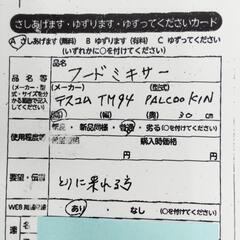 さしあげます・ゆずります・ゆずってくださいカード
A さしあげます (無料) B ゆずります (有料) C ゆずってください
(いずれかに○を付けてください)
品名等
(メーカー・型式・サイズを分かる範囲で記入してください)
品名
フードミキサー
メーカー 型式
テスコム TM94 PALCOO KIN
奥 30 cm
使用程度
新品・新品同様・普通・劣る (○を付けてください)
購入時価格
要望・伝言
とりに来れる方
WEB
あり ・ なし (○を付けてください)